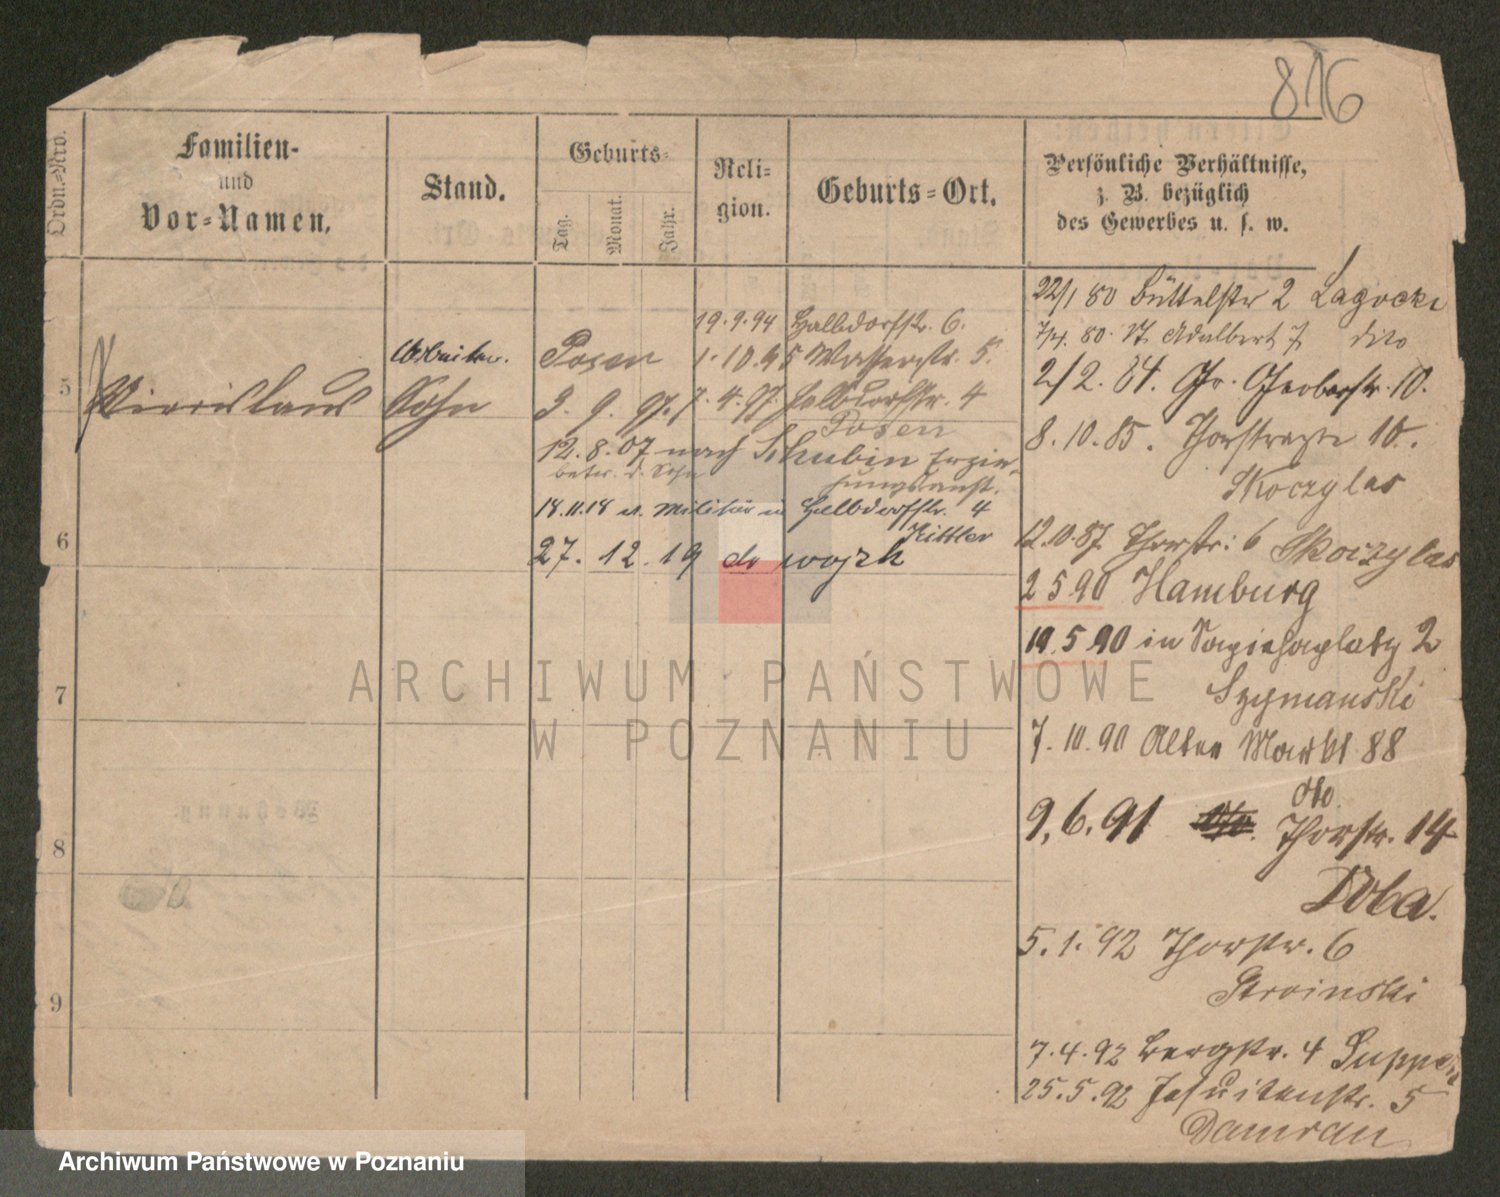 816
Ordn.-Nro.
Familien-
und
Vor-Namen.
Stand.
Geburts-
Tag.
Monat.
Jahr.
Reli-
gion.
Geburts-Ort.
Persönliche Verhältnisse,
z. B. bezüglich
des Gewerbes u. s. w.
5
Arbeiter.
Sohn
19.9.94 Halbdorfstr. 6.
Posen 1.10.95 Wasserstr. 5.
3. 9. 97. 7. 4. 97. Halbdorfstr. 4
Posen
12.8.07 nach Schubin Erzie-
betr. d. Sohn hungsanst.
18.11.18 v. Militär in Halbdorfstr. 4
Kittler
27. 12. 19 do wojsk
6
7
8
9
22/1 80 Büttelstr 2 Lagocki
7/4. 80. St. Adalbert 7 dito
2/2. 84. Gr. Gerberstr. 10.
8. 10. 85. Thorstrasse 10.
Skoczylas
12.10.87. Thorstr: 6 Skoczylas
2 5 90 Hamburg
19. 5 90 in Sapiehaplatz 2
Szymanski
7. 10. 90 Alter Markt 88
do.
9. 6. 91 Thorstr. 14
Doba.
5. 1. 92 Thorstr. 6
Stroinski
7. 4. 92 Bergstr. 4
25. 5. 92 Jesuitenstr. 5
ARCHIWUM PAŃSTWOWE
W POZNANIU
Archiwum Państwowe w Poznaniu